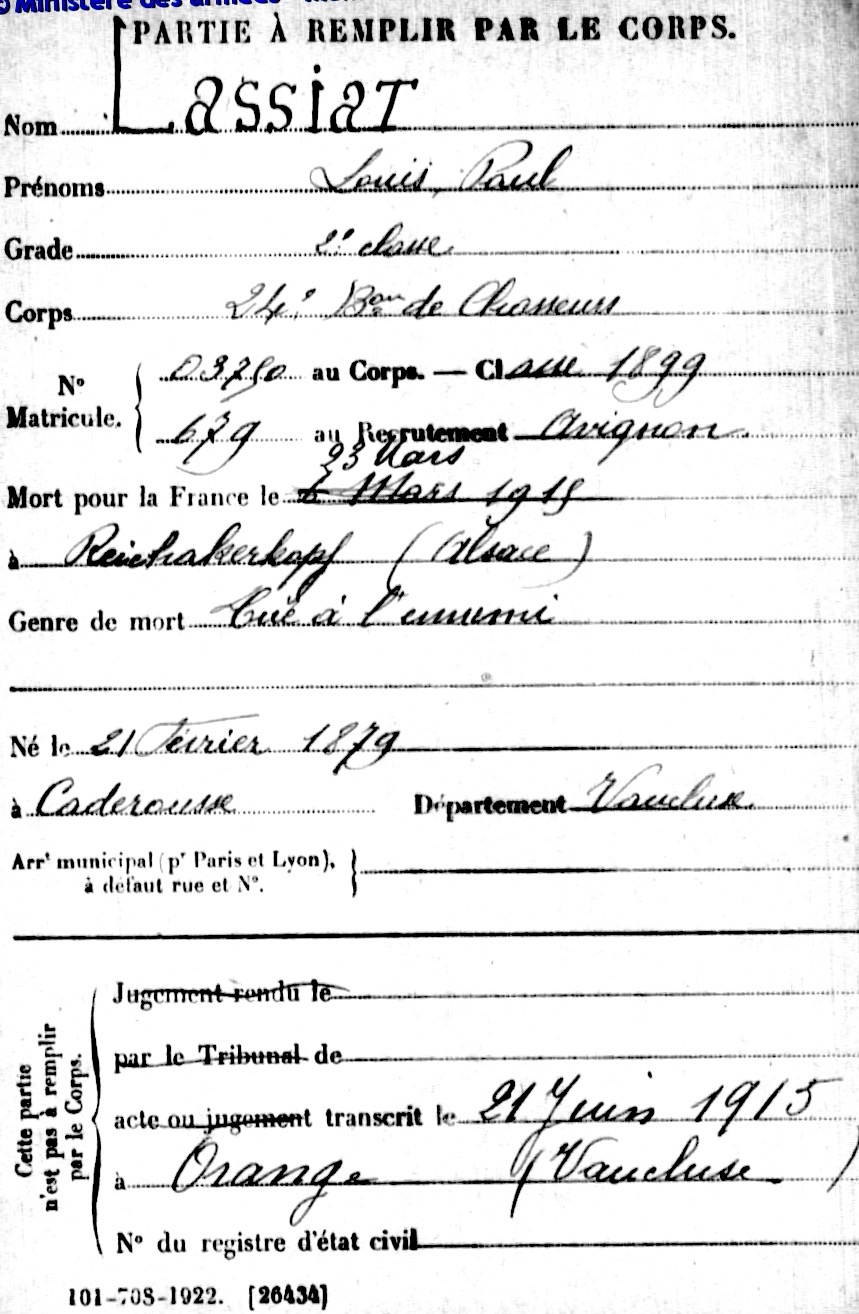 © Ministère des armées
PARTIE À REMPLIR PAR LE CORPS.
Nom Lassiat
Prénoms Louis, Paul
Grade 2e classe
Corps 24e Bon de Chasseurs
N° Matricule. { 03750 au Corps. — Classe 1899
679 au Recrutement Avignon
23 Mars
Mort pour la France le 6 Mars 1915
à Reichakerkopf (Alsace)
Genre de mort Tué à l'ennemi
Né le 21 Février 1879
à Caderousse Département Vaucluse
Arrt municipal (pr Paris et Lyon), }
à défaut rue et N°.
Cette partie
n'est pas à remplir
par le Corps.
Jugement rendu le
par le Tribunal de
acte ou jugement transcrit le 21 Juin 1915
à Orange (Vaucluse)
N° du registre d'état civil
101-708-1922. [26434]